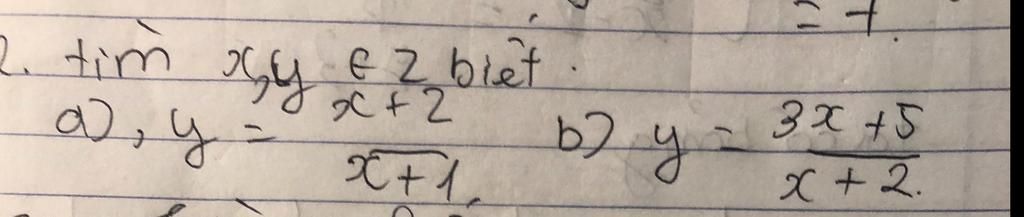 = 1.
2. tìm x,y ∈ Z biết.
a), y = \frac{x+2}{x+1}, b) y = \frac{3x+5}{x+2}.